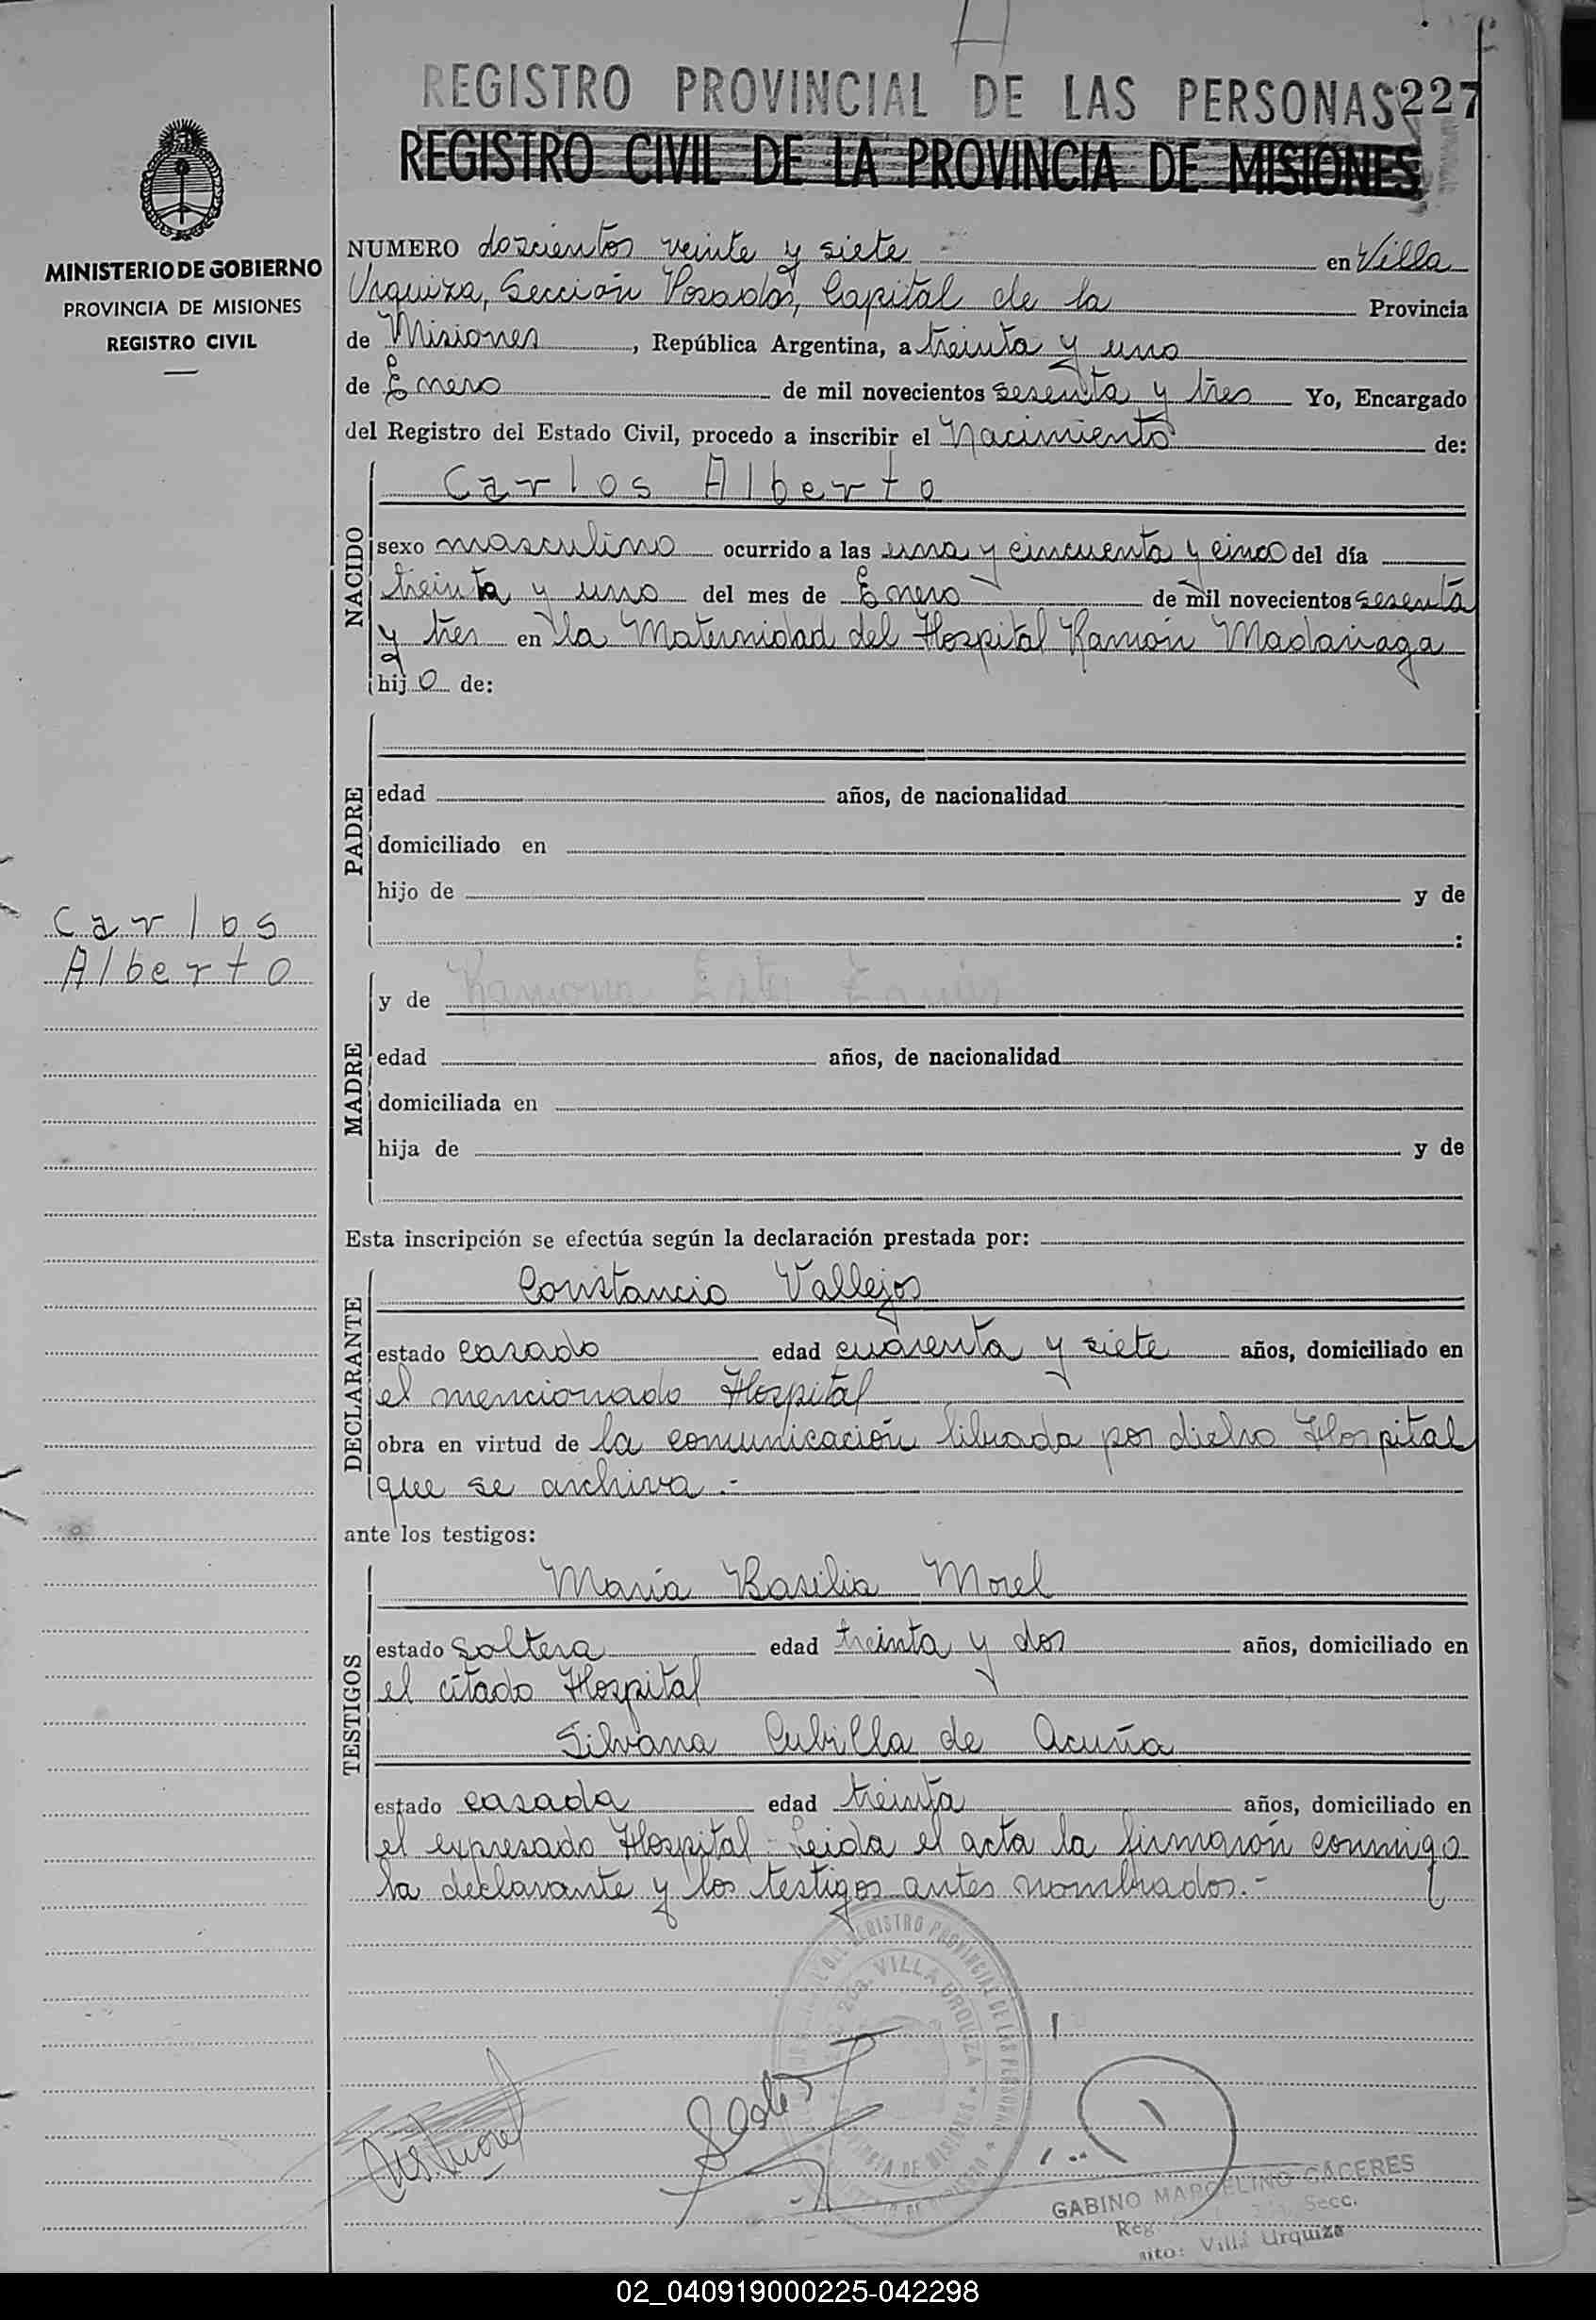 H
REGISTRO PROVINCIAL DE LAS PERSONAS 227
REGISTRO CIVIL DE LA PROVINCIA DE MISIONES
MINISTERIO DE GOBIERNO
PROVINCIA DE MISIONES
REGISTRO CIVIL
NUMERO doscientos veinte y siete.- en Villa
Urquiza, Sección Posadas, Capital de la Provincia
de Misiones, República Argentina, a treinta y uno
de Enero de mil novecientos sesenta y tres Yo, Encargado
del Registro del Estado Civil, procedo a inscribir el Nacimiento de:
NACIDO
Carlos Alberto
sexo masculino ocurrido a las una y cincuenta y cinco del día
treinta y uno del mes de Enero de mil novecientos sesenta
y tres en la Maternidad del Hospital Ramón Madariaga
hijo de:
PADRE
edad años, de nacionalidad
domiciliado en
hijo de y de
:
Carlos
Alberto
MADRE
y de Ramona
edad años, de nacionalidad
domiciliada en
hija de y de
Esta inscripción se efectúa según la declaración prestada por:
DECLARANTE
Constancio Vallejos
estado casado edad cuarenta y siete años, domiciliado en
el mencionado Hospital
obra en virtud de la comunicación librada por dicho Hospital
que se archiva.-
ante los testigos:
TESTIGOS
María Basilia Morel
estado soltera edad treinta y dos años, domiciliado en
el citado Hospital
Silvana Cubilla de Acuña
estado casada edad treinta años, domiciliado en
el expresado Hospital - Leida el acta la firmaron conmigo
la declarante y los testigos antes nombrados.-
REGISTRO PROVINCIAL DE LAS PERSONAS
VILLA URQUIZA
GABINO MARCELINO CÁCERES
Secc.
Villa Urquiza
02_040919000225-042298